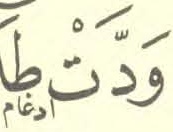 وَدَّتْ طَا
ادغام